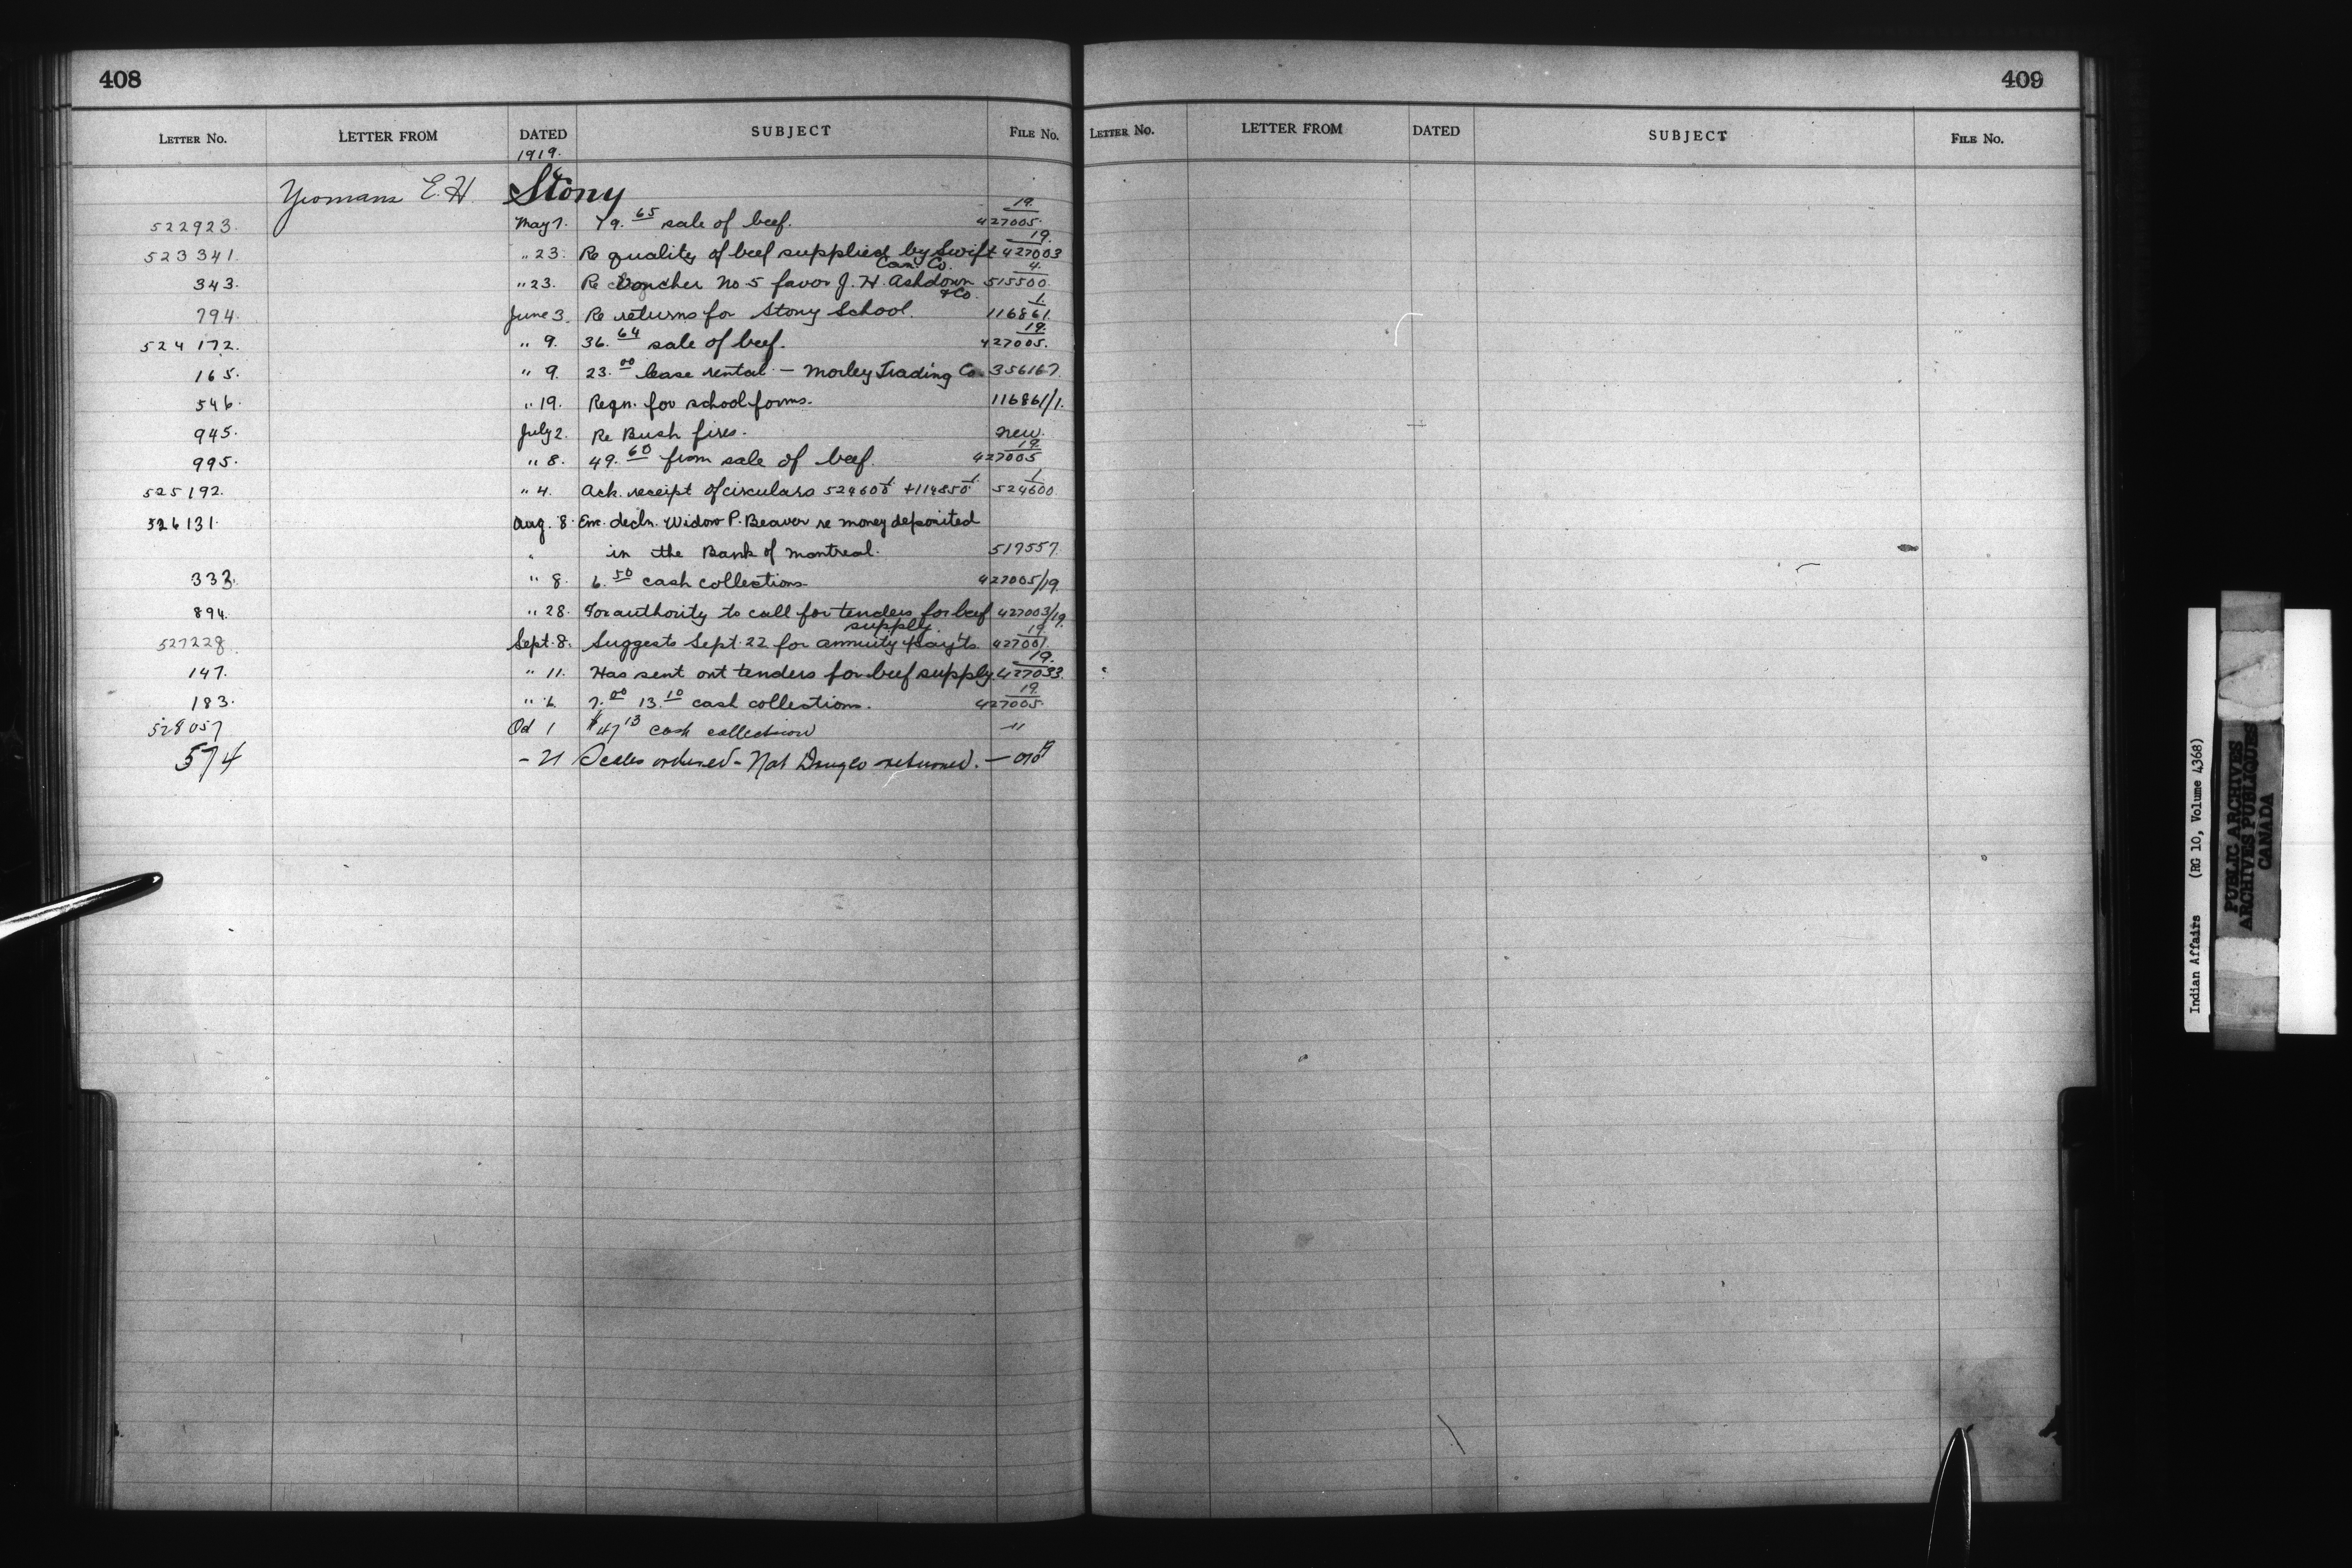 408
LETTER No. LETTER FROM DATED SUBJECT FILE No.
1919.
Yeomans E. H. Stony
522923. May 7. 79.65 sale of beef. 427005/19.
523341. " 23. Re quality of beef supplied by Swift Can. Co. 427003/19.
343. " 23. Re Voucher No 5 favor J. H. Ashdown & Co. 515500/4.
794. June 3. Re returns for Stony School. 116861/1.
524172. " 9. 36.64 sale of beef. 427005/19.
165. " 9. 23.00 lease rental - Morley Trading Co. 356167.
546. " 19. Reqn. for school forms. 116861/1.
945. July 2. Re Bush fires. new.
995. " 8. 49.60 from sale of beef. 427005/19.
525192. " 4. Ack. receipt of circulars 524600/1 + 114850/1 524600/1
526131. Aug. 8. Enc. decln. Widow P. Beaver re money deposited
" in the Bank of Montreal. 517557.
333. " 8. 6.50 cash collections. 427005/19.
894. " 28. For authority to call for tenders for beef supply. 427003/19.
527228. Sept. 8. Suggests Sept. 22 for annuity pay'ts. 427001/19.
147. " 11. Has sent out tenders for beef supply. 427033/19.
183. " 6. 7.00 13.10 cash collections. 427005/19.
528057 Oct 1 $47.13 cash collection "
574 - 21 Scales ordered - Nat Drug Co returned.
409
LETTER No. LETTER FROM DATED SUBJECT FILE No.
Indian Affairs (RG 10, Volume 4368)
PUBLIC ARCHIVES
ARCHIVES PUBLIQUES
CANADA